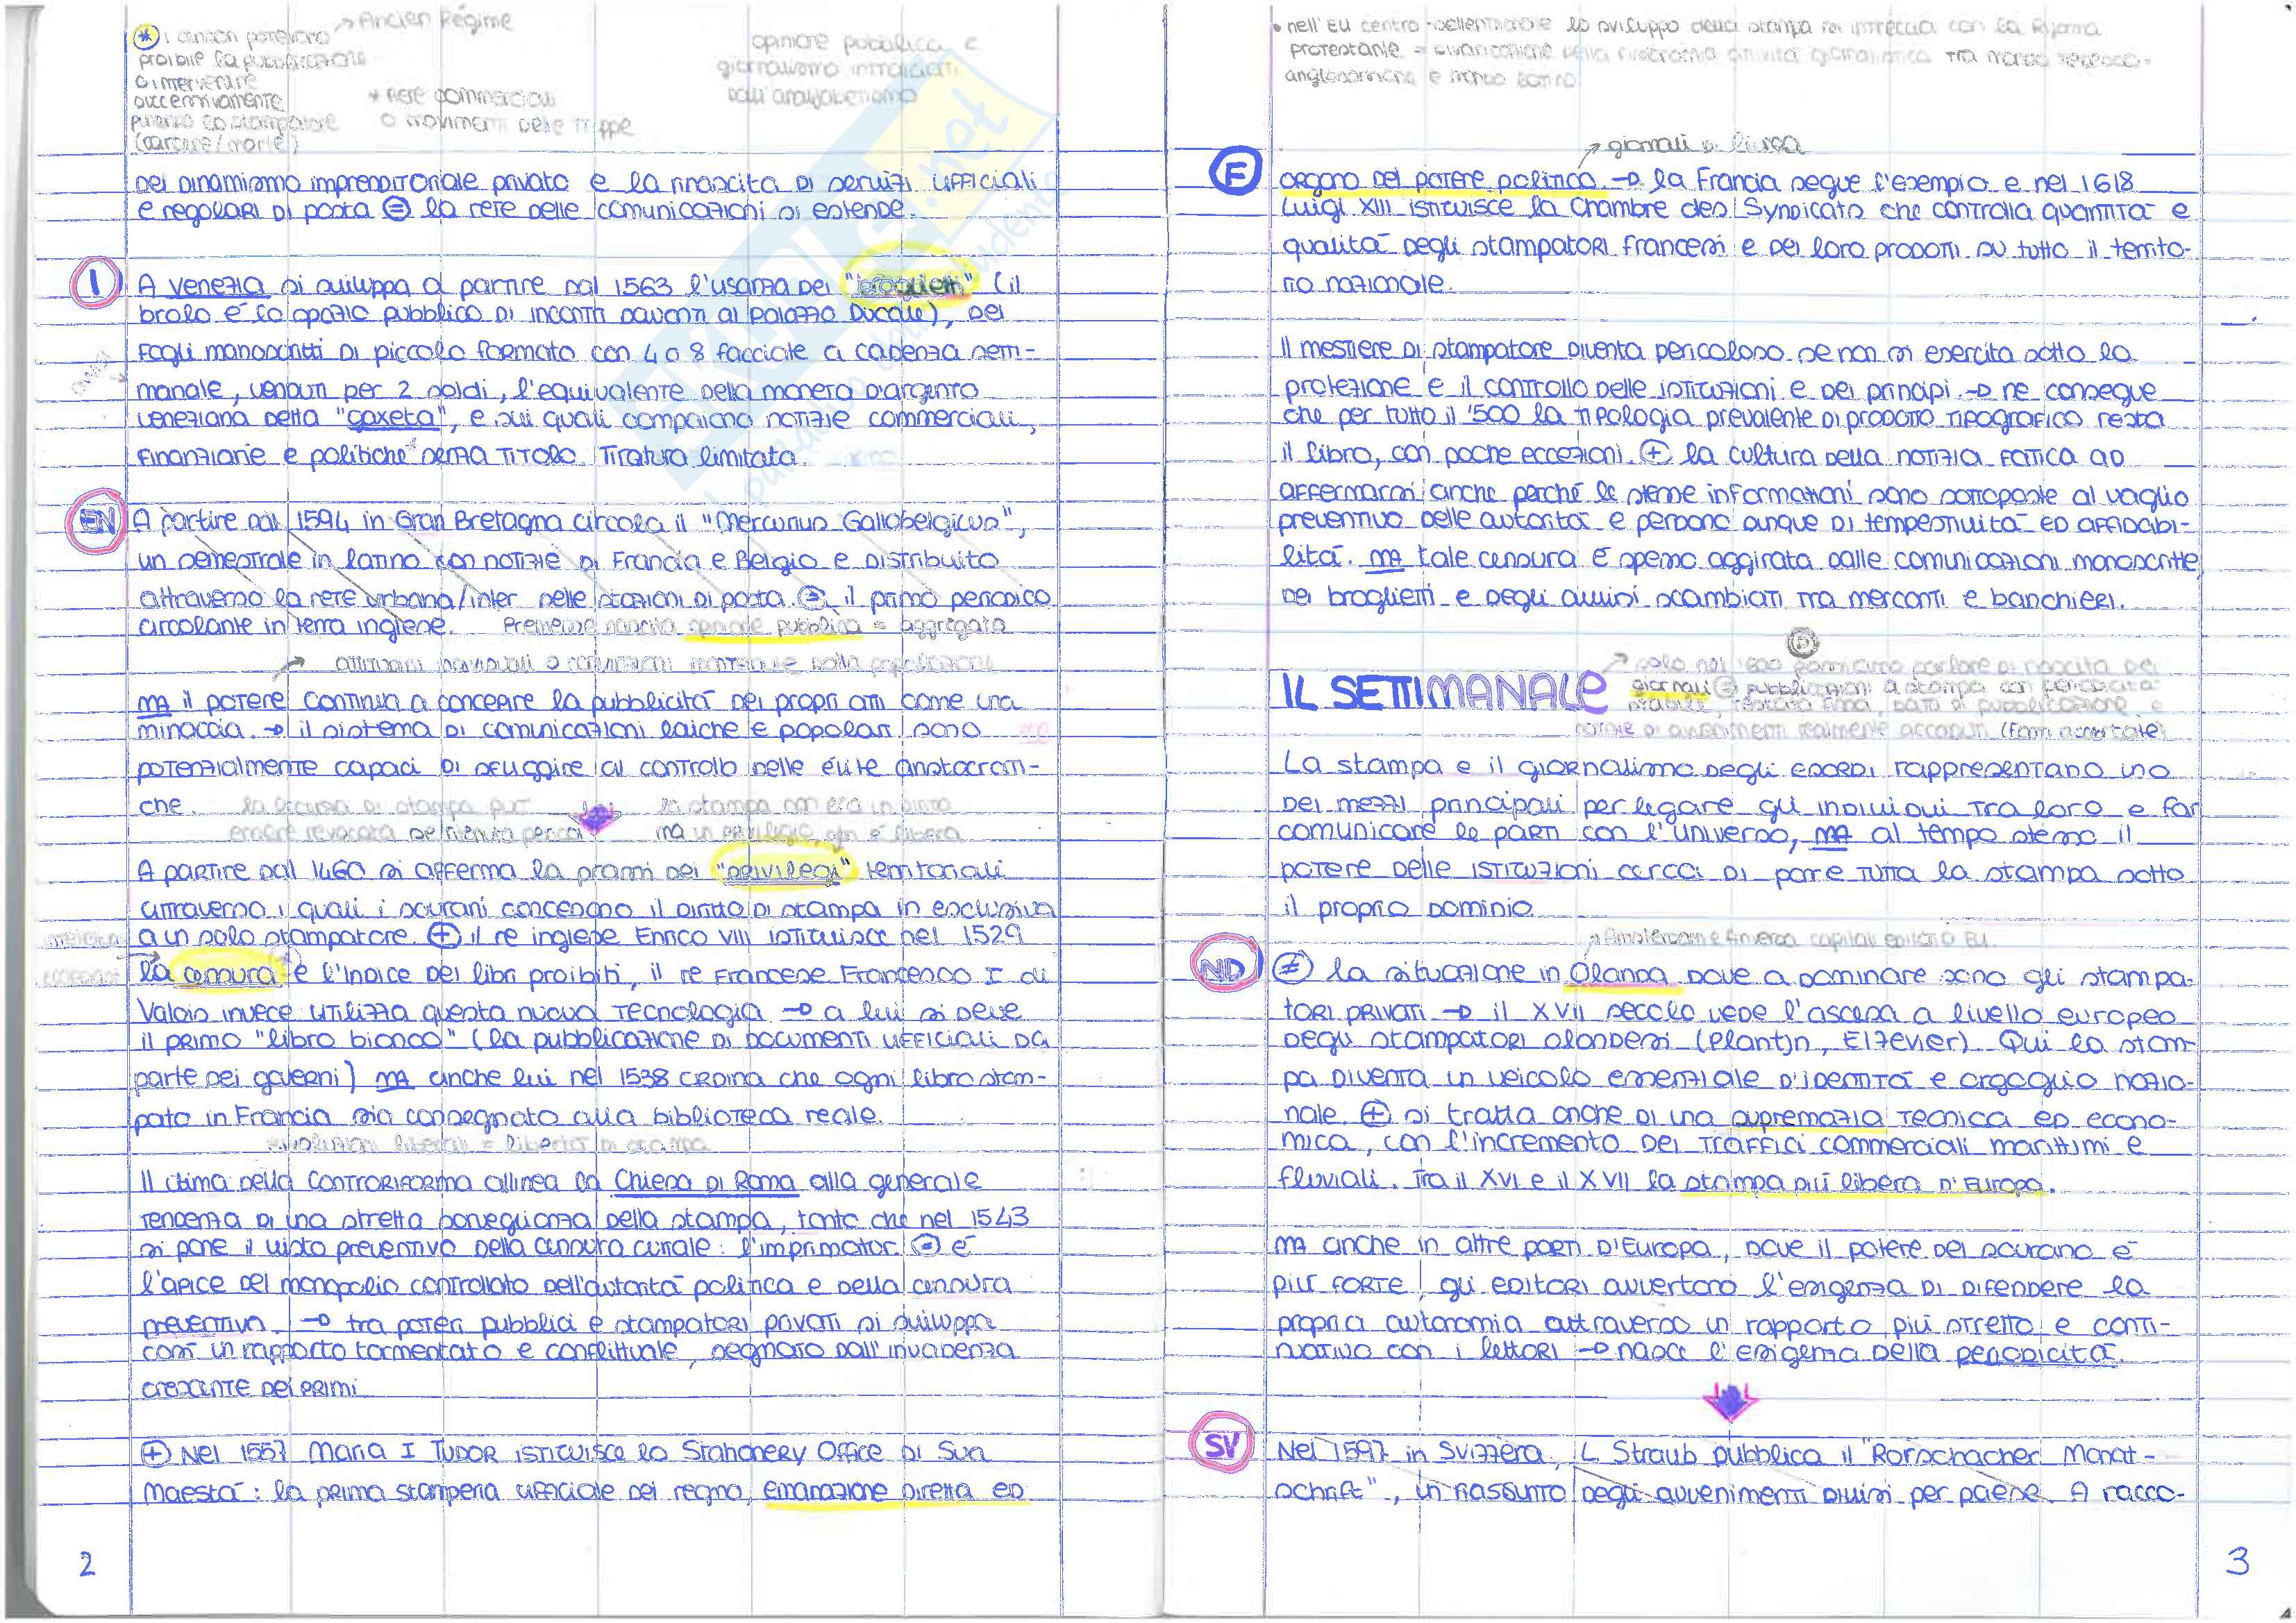 * i censori potevano → Ancien Régime
proibire la pubblicazione
o intervenire
successivamente
punendo lo stampatore
(carcere/morte)
* rete commerciali
o movimenti delle truppe
opinione pubblica e
giornalismo intralciati
dall'analfabetismo
dei dinamismo imprenditoriale privato e la rinascita di servizi ufficiali
e regolari di posta = la rete delle comunicazioni si estende.
I A Venezia si sviluppa a partire dal 1563 l'usanza dei "broglietti" (il
brolo è lo spazio pubblico di incontri davanti al Palazzo Ducale), dei
avvisi
fogli manoscritti di piccolo formato con 4 o 8 facciate a cadenza setti-
manale, venduti per 2 soldi, l'equivalente della moneta d'argento
veneziana detta "gaxeta", e sui quali compaiono notizie commerciali,
finanziarie e politiche* senza titolo. Tiratura limitata.
EN A partire dal 1594 in Gran Bretagna circola il "Mercurius Gallobelgicus",
un semestrale in latino con notizie di Francia e Belgio e distribuito
attraverso la rete urbana/inter delle stazioni di posta. = il primo periodico
circolante in terra inglese. Premesse nascita opinione pubblica = aggregato
→ attitudini individuali o convinzioni sulla popolazione
MA il potere continua a concepire la pubblicità dei propri atti come una
minaccia. → il sistema di comunicazioni laiche e popolari sono
potenzialmente capaci di sfuggire al controllo delle élite aristocrati-
che. la licenza di stampa può la stampa non era un diritto
essere revocata se ritenuta ma un privilegio, non è libera
A partire dal 1460 si afferma la prassi dei "privilegi" territoriali
attraverso i quali i sovrani concedono il diritto di stampa in esclusiva
a un solo stampatore. + il re inglese Enrico VIII istituisce nel 1529
la censura e l'indice dei libri proibiti, il re francese Francesco I di
Valois invece utilizza questa nuova tecnologia → a lui si deve
il primo "libro bianco" (la pubblicazione di documenti ufficiali da
parte dei governi) MA anche lui nel 1538 ordina che ogni libro stam-
pato in Francia sia consegnato alla biblioteca reale.
rivoluzioni liberali = libertà di stampa
Il clima della Controriforma allinea la Chiesa di Roma alla generale
tendenza di una stretta sorveglianza della stampa, tanto che nel 1543
si pone il visto preventivo della censura curiale: l'imprimatur. = è
l'apice del monopolio controllato dell'autorità politica e della censura
preventiva. → tra poteri pubblici e stampatori privati si sviluppa
così un rapporto tormentato e conflittuale, segnato dall'invadenza
crescente dei primi
+ Nel 1557 Maria I Tudor istituisce lo Stationery Office di Sua
Maestà: la prima stamperia ufficiale dei regno, emanazione diretta ed
2
• nell'EU centro-settentrionale lo sviluppo della stampa si intreccia con la Riforma
Protestante = divaricazione della attività giornalistica tra mondo tedesco-
anglosassone e mondo latino
→ giornali di linea
F organo del potere politico. → la Francia segue l'esempio e nel 1618
Luigi XIII istituisce la Chambre des Syndicats che controlla quantità e
qualità degli stampatori francesi e dei loro prodotti su tutto il territo-
rio nazionale.
Il mestiere di stampatore diventa pericoloso se non si esercita sotto la
protezione e il controllo delle istituzioni e dei principi. → ne consegue
che per tutto il '500 la tipologia prevalente di prodotto tipografico resta
il libro, con poche eccezioni. + la cultura della notizia fatica ad
affermarsi anche perché le stesse informazioni sono sottoposte al vaglio
preventivo delle autorità e perdono dunque di tempestività ed affidabi-
lità. MA tale censura è spesso aggirata dalle comunicazioni manoscritte
dei broglietti e degli avvisi scambiati tra mercanti e banchieri.
IL SETTIMANALE
→ solo nel '600 possiamo parlare di nascita dei
giornali = pubblicazioni a stampa con periodicità
stabile, testata fissa, data di pubblicazione e
notizie di avvenimenti realmente accaduti (fatti accertate)
La stampa e il giornalismo degli esordi rappresentano uno
dei mezzi principali per legare gli individui tra loro e far
comunicare le parti con l'universo, MA al tempo stesso il
potere delle istituzioni cerca di porre tutta la stampa sotto
il proprio dominio
→ Amsterdam e Anversa capitali editoria EU
ND ≠ la situazione in Olanda dove a dominare sono gli stampa-
tori privati → il XVII secolo vede l'ascesa a livello europeo
degli stampatori olandesi (Plantjn, Elzevier). Qui la stam-
pa diventa un veicolo essenziale d'identità e orgoglio nazio-
nale. + si tratta anche di una supremazia tecnica ed econo-
mica, con l'incremento dei traffici commerciali marittimi e
fluviali. Tra il XVI e il XVII la stampa più libera d'Europa.
MA anche in altre parti d'Europa, dove il potere del sovrano è
più forte, gli editori avvertono l'esigenza di difendere la
propria autonomia attraverso un rapporto più stretto e conti-
nuativo con i lettori → nasce l'esigenza della periodicità.
SV Nel 1597 in Svizzera, L Straub pubblica il "Rorschacher Monat-
schrift", un riassunto degli avvenimenti divisi per paese. A racco-
3